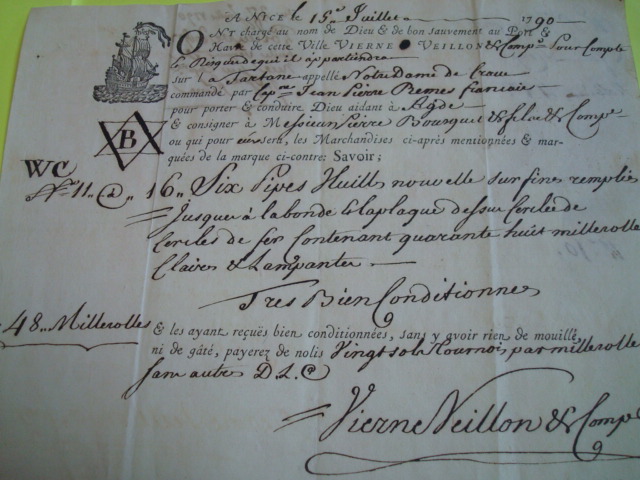 A NICE le 15e Juillet 1790
ONT chargé au nom de Dieu & de bon sauvement au Port &
Havre de cette Ville VIERNE VEILLON & Compe Pour Compte
& Risque de qui il appartiendra
sur la Tartane appellé Notre Dame de Grace
commandé par Capne Jean Pierre Remes francais
pour porter & conduire Dieu aidant à Agde
& consigner à Messieurs Pierre Bousquet & fils & Compe
ou qui pour eux sera, les Marchandises ci-après mentionnées & mar-
quées de la marque ci-contre: Savoir;
B
WC
No 11 @ 16 Six Pipes Huille nouvelle surfine remplies
Jusque à la bonde & la plaque dessus Cerclée de
Cercles de fer Contenant quarante huit millerolle
Claire & Lampante
Tres Bien Conditionnés
48 Millerolles
& les ayant reçuës bien conditionnées, sans y avoir rien de mouillé,
ni de gâté, payerez de nolis Vingt sols Tournois par millerolle
sans autre D. L. C
Vierne Veillon & Compe